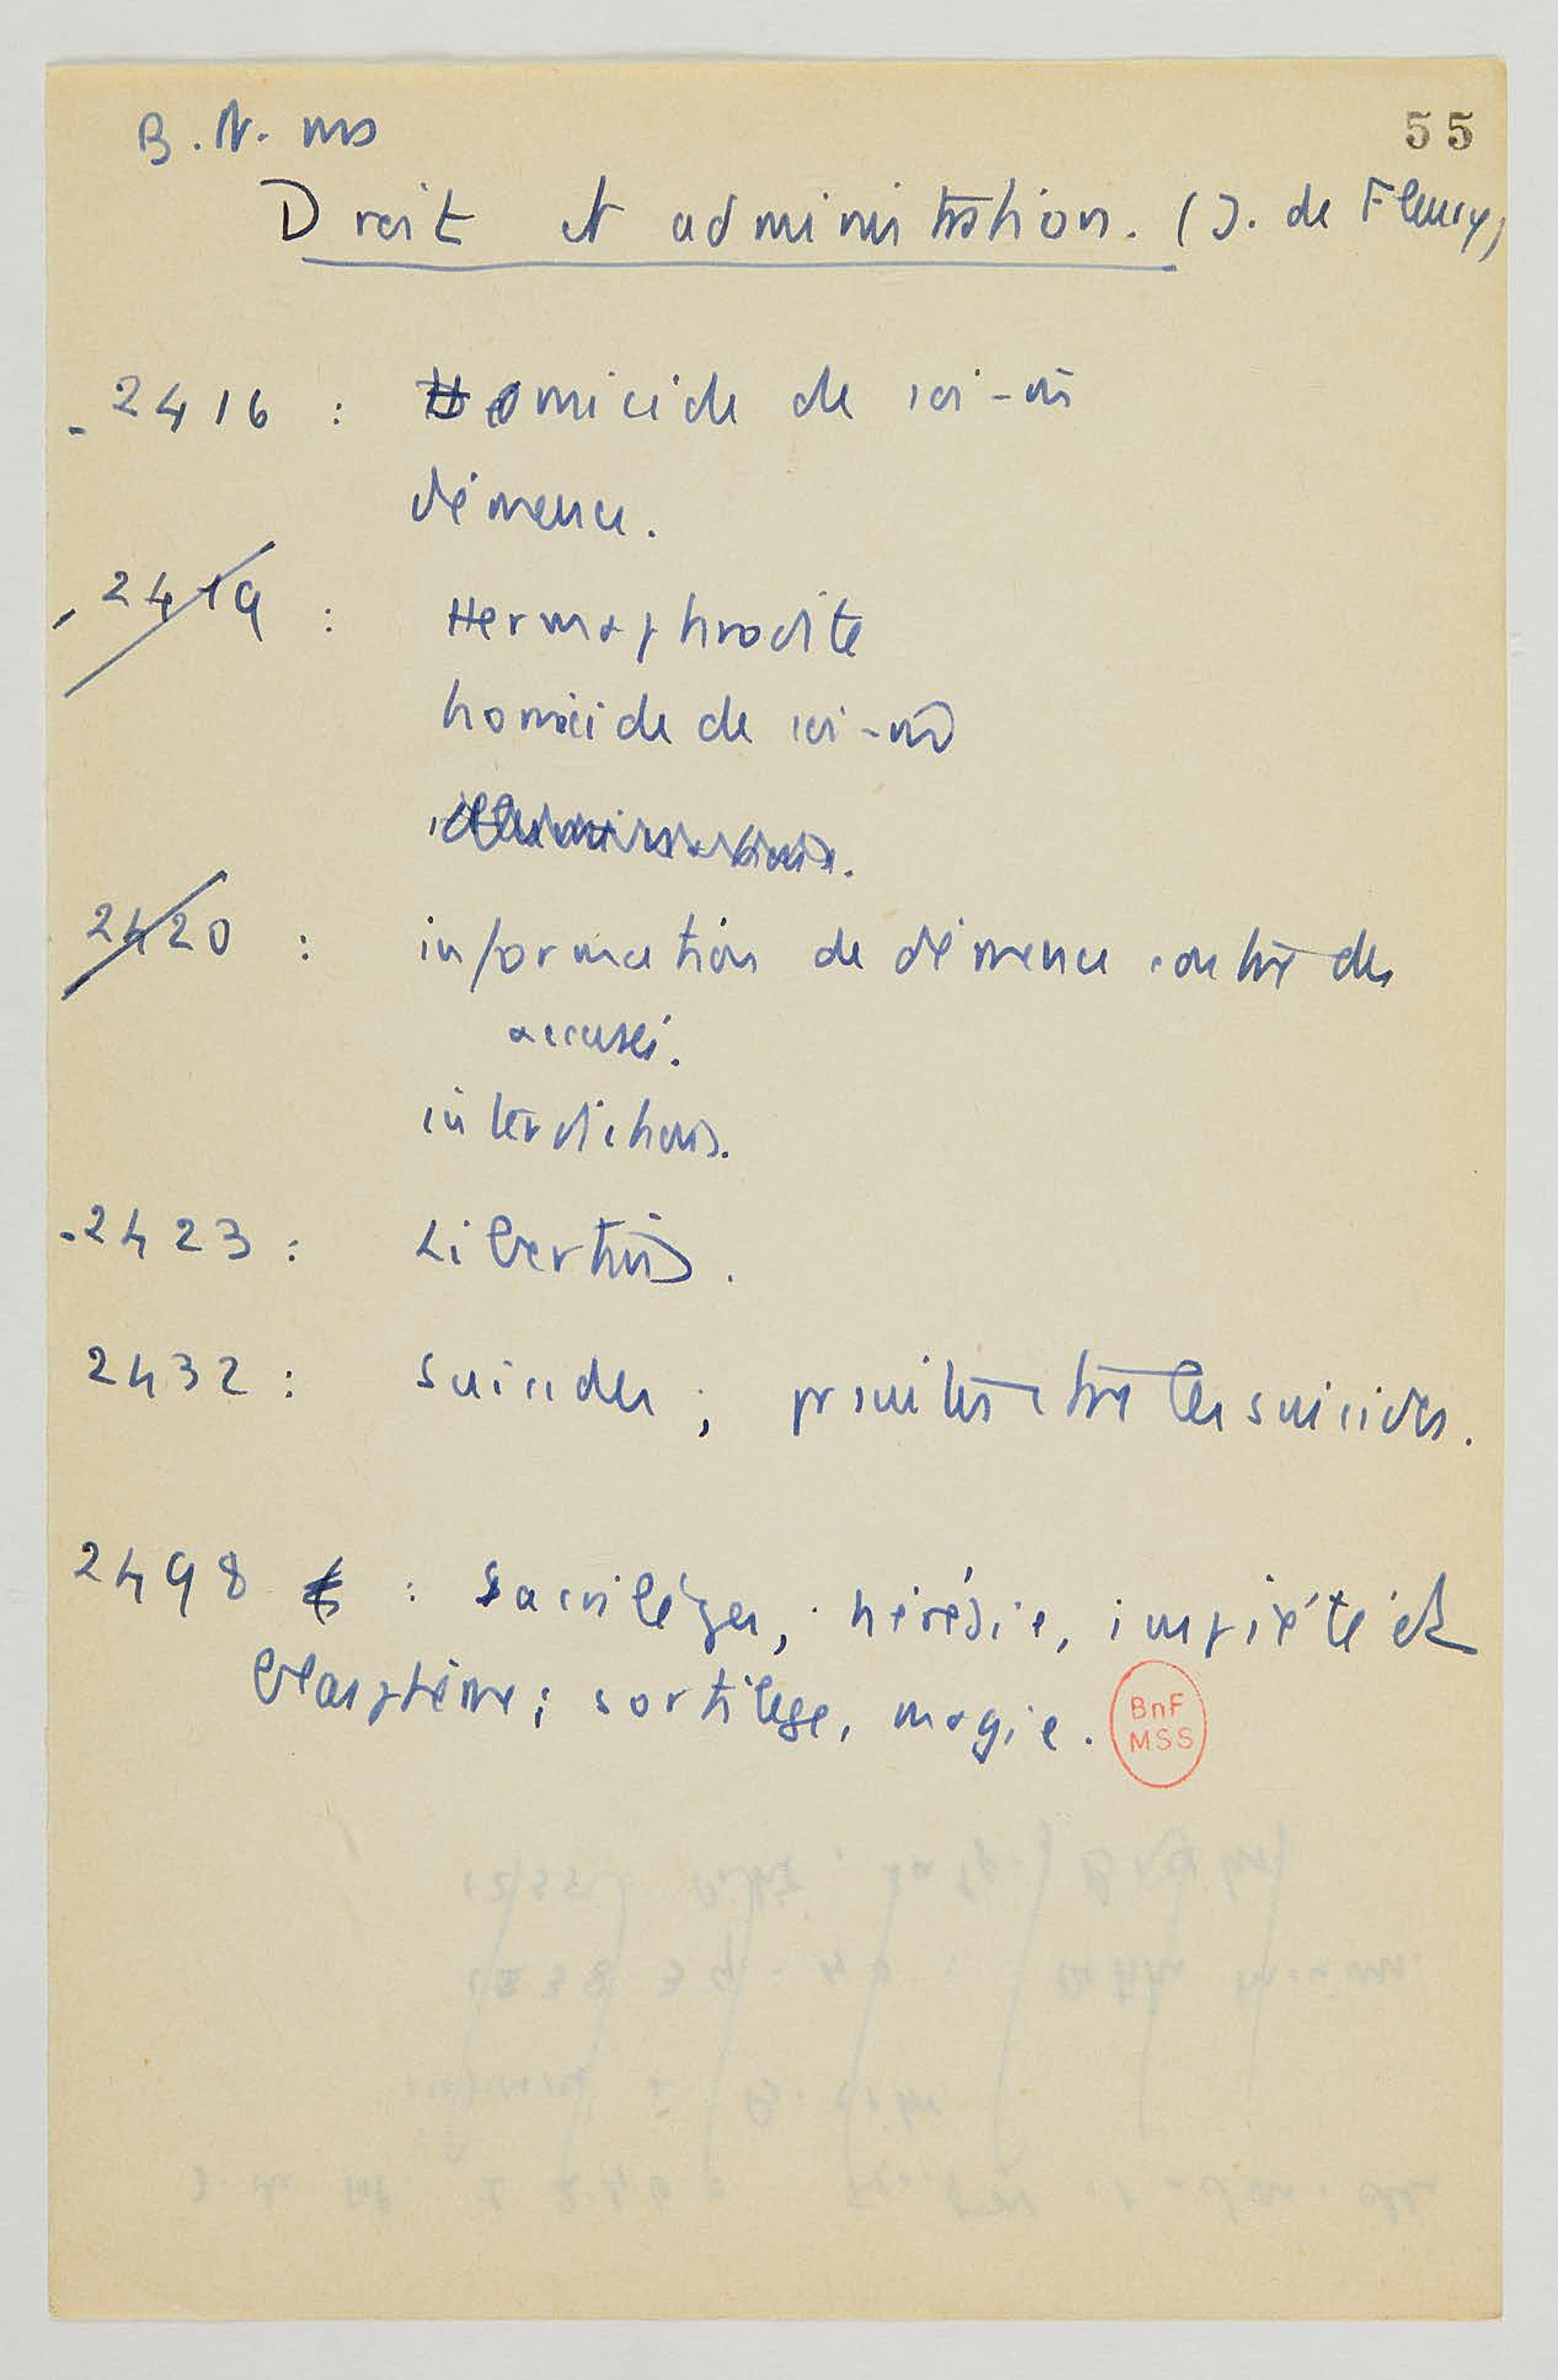 B.N. ms
55
Droit et administration. (J. de Fleury)
- 2416 : Homicide de soi-m̄
démence.
- 2419 : Hermaphrodite
homicide de soi-m̄
2420 : information de démence contre des
accusés.
interdictions.
- 2423 : Libertins.
2432 : Suicides ; poursuites ctre les suicides.
2498 : Sacrilèges, hérésie, impiété et
blasphème ; sortilège, magie.
BnF
MSS